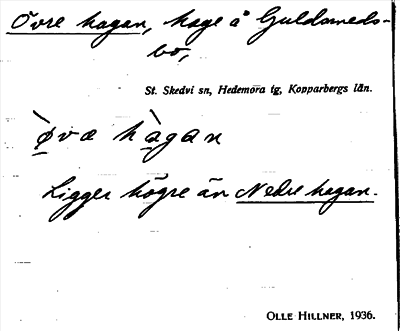 Övre hagan, hage å Guldsmeds-
bo,
St. Skedvi sn, Hedemora tg, Kopparbergs län.
ø̀va hàgan
Ligger högre än Nedre hagan.
OLLE HILLNER, 1936.